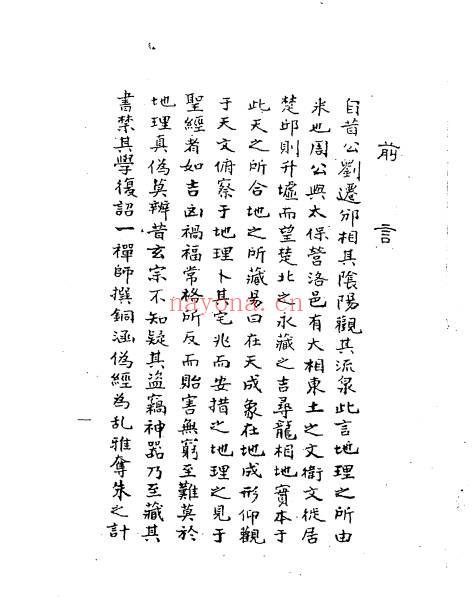 前言
自昔公劉遷邠相其陰陽觀其流泉此言地理之所由
來也周公與太保營洛邑有大相東土之文衛文徙居
楚邱則升墟而望楚北之永藏之吉尋龍相地實本于
此天之所合地之所藏易曰在天成象在地成形仰觀
于天文俯察于地理卜其宅兆而安措之地理之見于
聖經者如吉凶禍福常格所反而貽害無窮至難莫於
地理真偽莫辨昔玄宗不知疑其盜竊神器乃至藏其
書禁其學復詔一禪師撰銅涵偽經為乱雅奪朱之計
一
nayona.cn